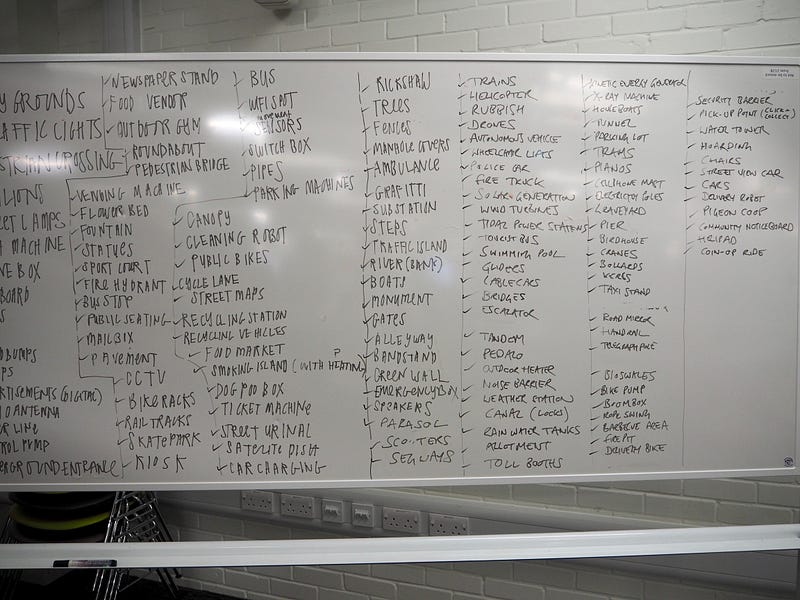 Y GROUNDS
AFFIC LIGHTS
STRIAN CROSSING
ILIONS
ET LAMPS
A MACHINE
VE BOX
BOARD
S
D BUMPS
PS
RTISEMENTS (DIGITAL)
O ANTENNA
ER LINE
ROL PUMP
ERGROUND ENTRANCE
NEWSPAPER STAND
FOOD VENDOR
OUTDOOR GYM
ROUNDABOUT
PEDESTRIAN BRIDGE
VENDING MACHINE
FLOWER BED
FOUNTAIN
STATUES
SPORT COURT
FIRE HYDRANT
BUS STOP
PUBLIC SEATING
MAILBOX
PAVEMENT
CCTV
BIKE RACKS
RAIL TRACKS
SKATEPARK
KIOSK
BUS
WIFI SPOT
SENSORS
SWITCH BOX
PIPES
PARKING MACHINES
CANOPY
CLEANING ROBOT
PUBLIC BIKES
CYCLE LANE
STREET MAPS
RECYCLING STATION
RECYCLING VEHICLES
FOOD MARKET
SMOKING ISLAND (WITH HEATING)
DOG POO BOX
TICKET MACHINE
STREET URINAL
SATELITE DISH
CAR CHARGING
RICKSHAW
TREES
FENCES
MANHOLE COVERS
AMBULANCE
GRAFITTI
SUBSTATION
STEPS
TRAFFIC ISLAND
RIVER (BANK)
BOATS
MONUMENT
GATES
ALLEYWAY
BANDSTAND
GREEN WALL
EMERGENCY BOX
SPEAKERS
PARASOL
SCOOTERS
SEGWAYS
TRAINS
HELICOPTER
RUBBISH
DRONES
AUTONOMOUS VEHICLE
WHEELCHAIR LIFTS
POLICE CAR
FIRE TRUCK
SOLAR GENERATION
WIND TURBINES
TIDAL POWER STATIONS
TOURIST BUS
SWIMMING POOL
GLIDERS
CABLECARS
BRIDGES
ESCALATOR
TANDOM
PEDALO
OUTDOOR HEATER
NOISE BARRIER
WEATHER STATION
CANAL (LOCKS)
RAIN WATER TANKS
ALLOTMENT
TOLL BOOTHS
KINETIC ENERGY GENERATOR
X-RAY MACHINE
HOUSEBOATS
TUNNEL
PARKING LOT
TRAMS
PIANOS
CELLPHONE MAST
ELECTRICITY POLES
GRAVEYARD
PIER
BIRDHOUSE
CRANES
BOLLARDS
KERBS
TAXI STAND
ROAD MIRROR
HANDRAIL
TELEGRAPH POLE
BIOSWALES
BIKE PUMP
BOOMBOX
ROPE SWING
BARBECUE AREA
FIREPIT
DELIVERY BIKE
SECURITY BARRIER
PICK-UP POINT (CLICK + COLLECT)
WATER TOWER
HOARDING
CHAIRS
STREET VIEW CAR
CARS
DELIVERY ROBOT
PIGEON COOP
COMMUNITY NOTICEBOARD
HELIPAD
COIN-OP RIDE